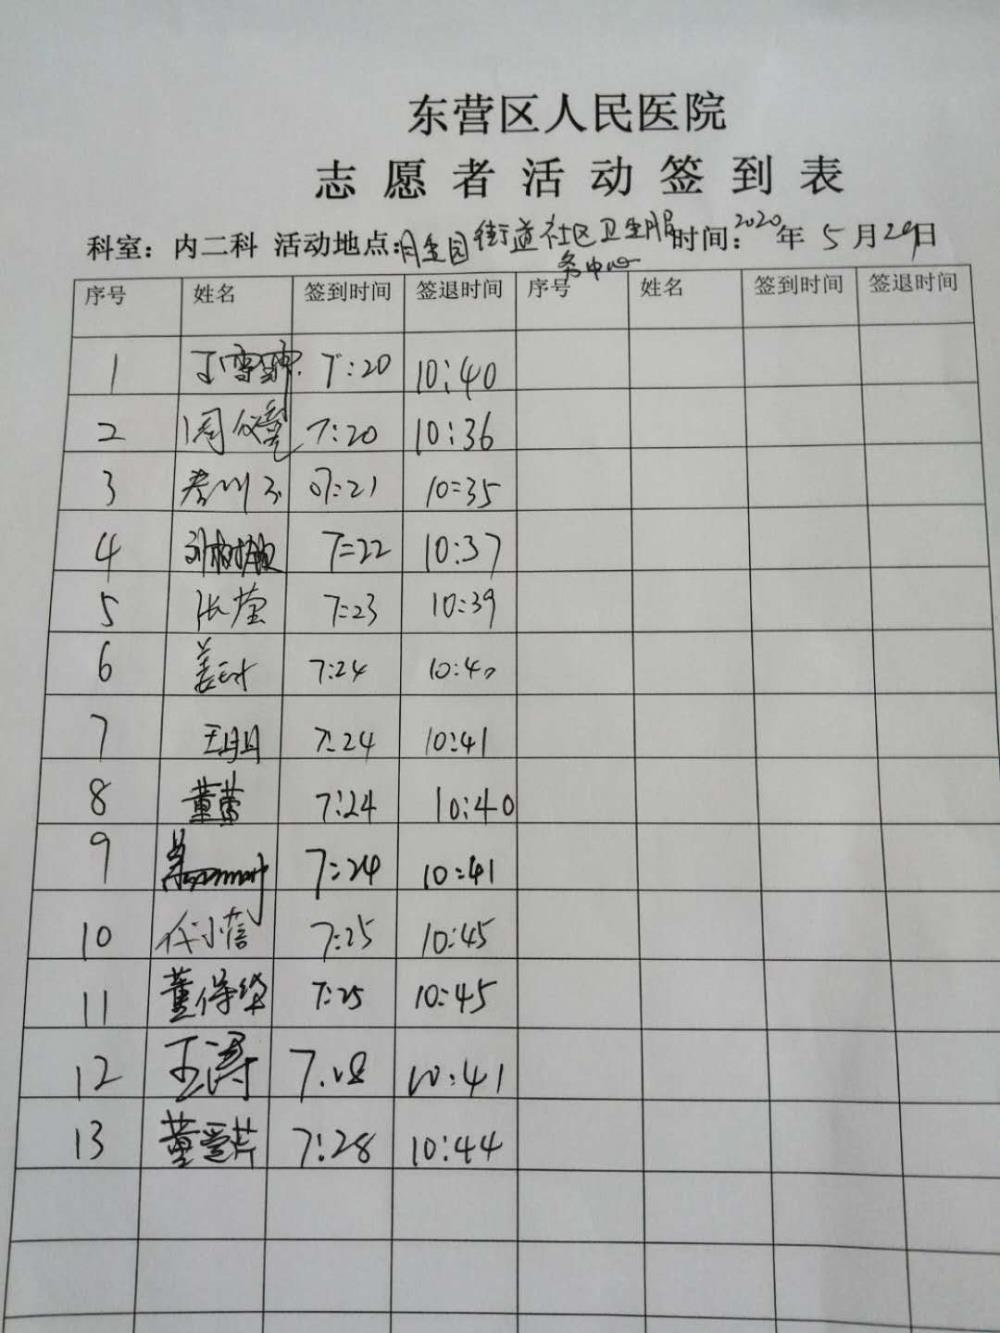 东营区人民医院
志愿者活动签到表
科室：内二科 活动地点：街道社区卫生服务中心 时间：2020年5月29日
序号 姓名 签到时间 签退时间 序号 姓名 签到时间 签退时间
1 7:20 10:40
2 7:20 10:36
3 07:21 10:35
4 7:22 10:37
5 张莹 7:23 10:39
6 7:24 10:40
7 王明 7:24 10:41
8 董蕾 7:24 10:40
9 7:24 10:41
10 代小倩 7:25 10:45
11 董保华 7:25 10:45
12 王涛 10:41
13 董爱芹 7:28 10:44